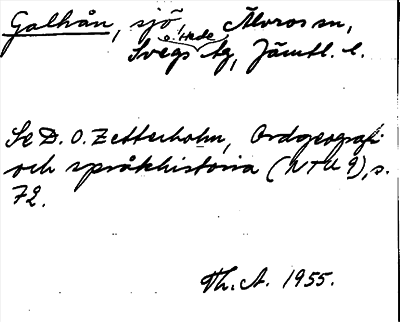 Galhån, sjö, Älvros sn,
Svegs o. Hede tg, Jämtl. l.
Se D. O. Zetterholm, Ordgeografi
och språkhistoria (NTU 9), s.
72.
Th. A. 1955.